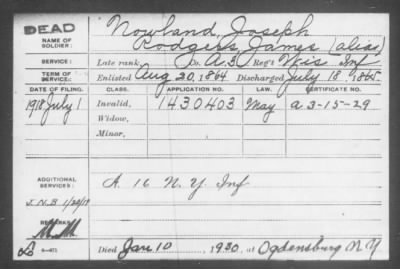 DEAD
NAME OF SOLDIER: Nowland, Joseph
Rodgers, James (alias)
SERVICE: Late rank, Co. A. 3 Reg't Wis Inf
TERM OF SERVICE: Enlisted Aug 20, 1864 Discharged July 18, 1865
DATE OF FILING. CLASS. APPLICATION NO. LAW. CERTIFICATE NO.
1918 July 1 Invalid, 1430403 May a 3-15-29
Widow,
Minor,
ADDITIONAL SERVICES: A. 16 N.Y. Inf
J.N.B 1/22/19
REMARKS:
MM
6-471
Died Jan 10, 1930, at Ogdensburg N Y